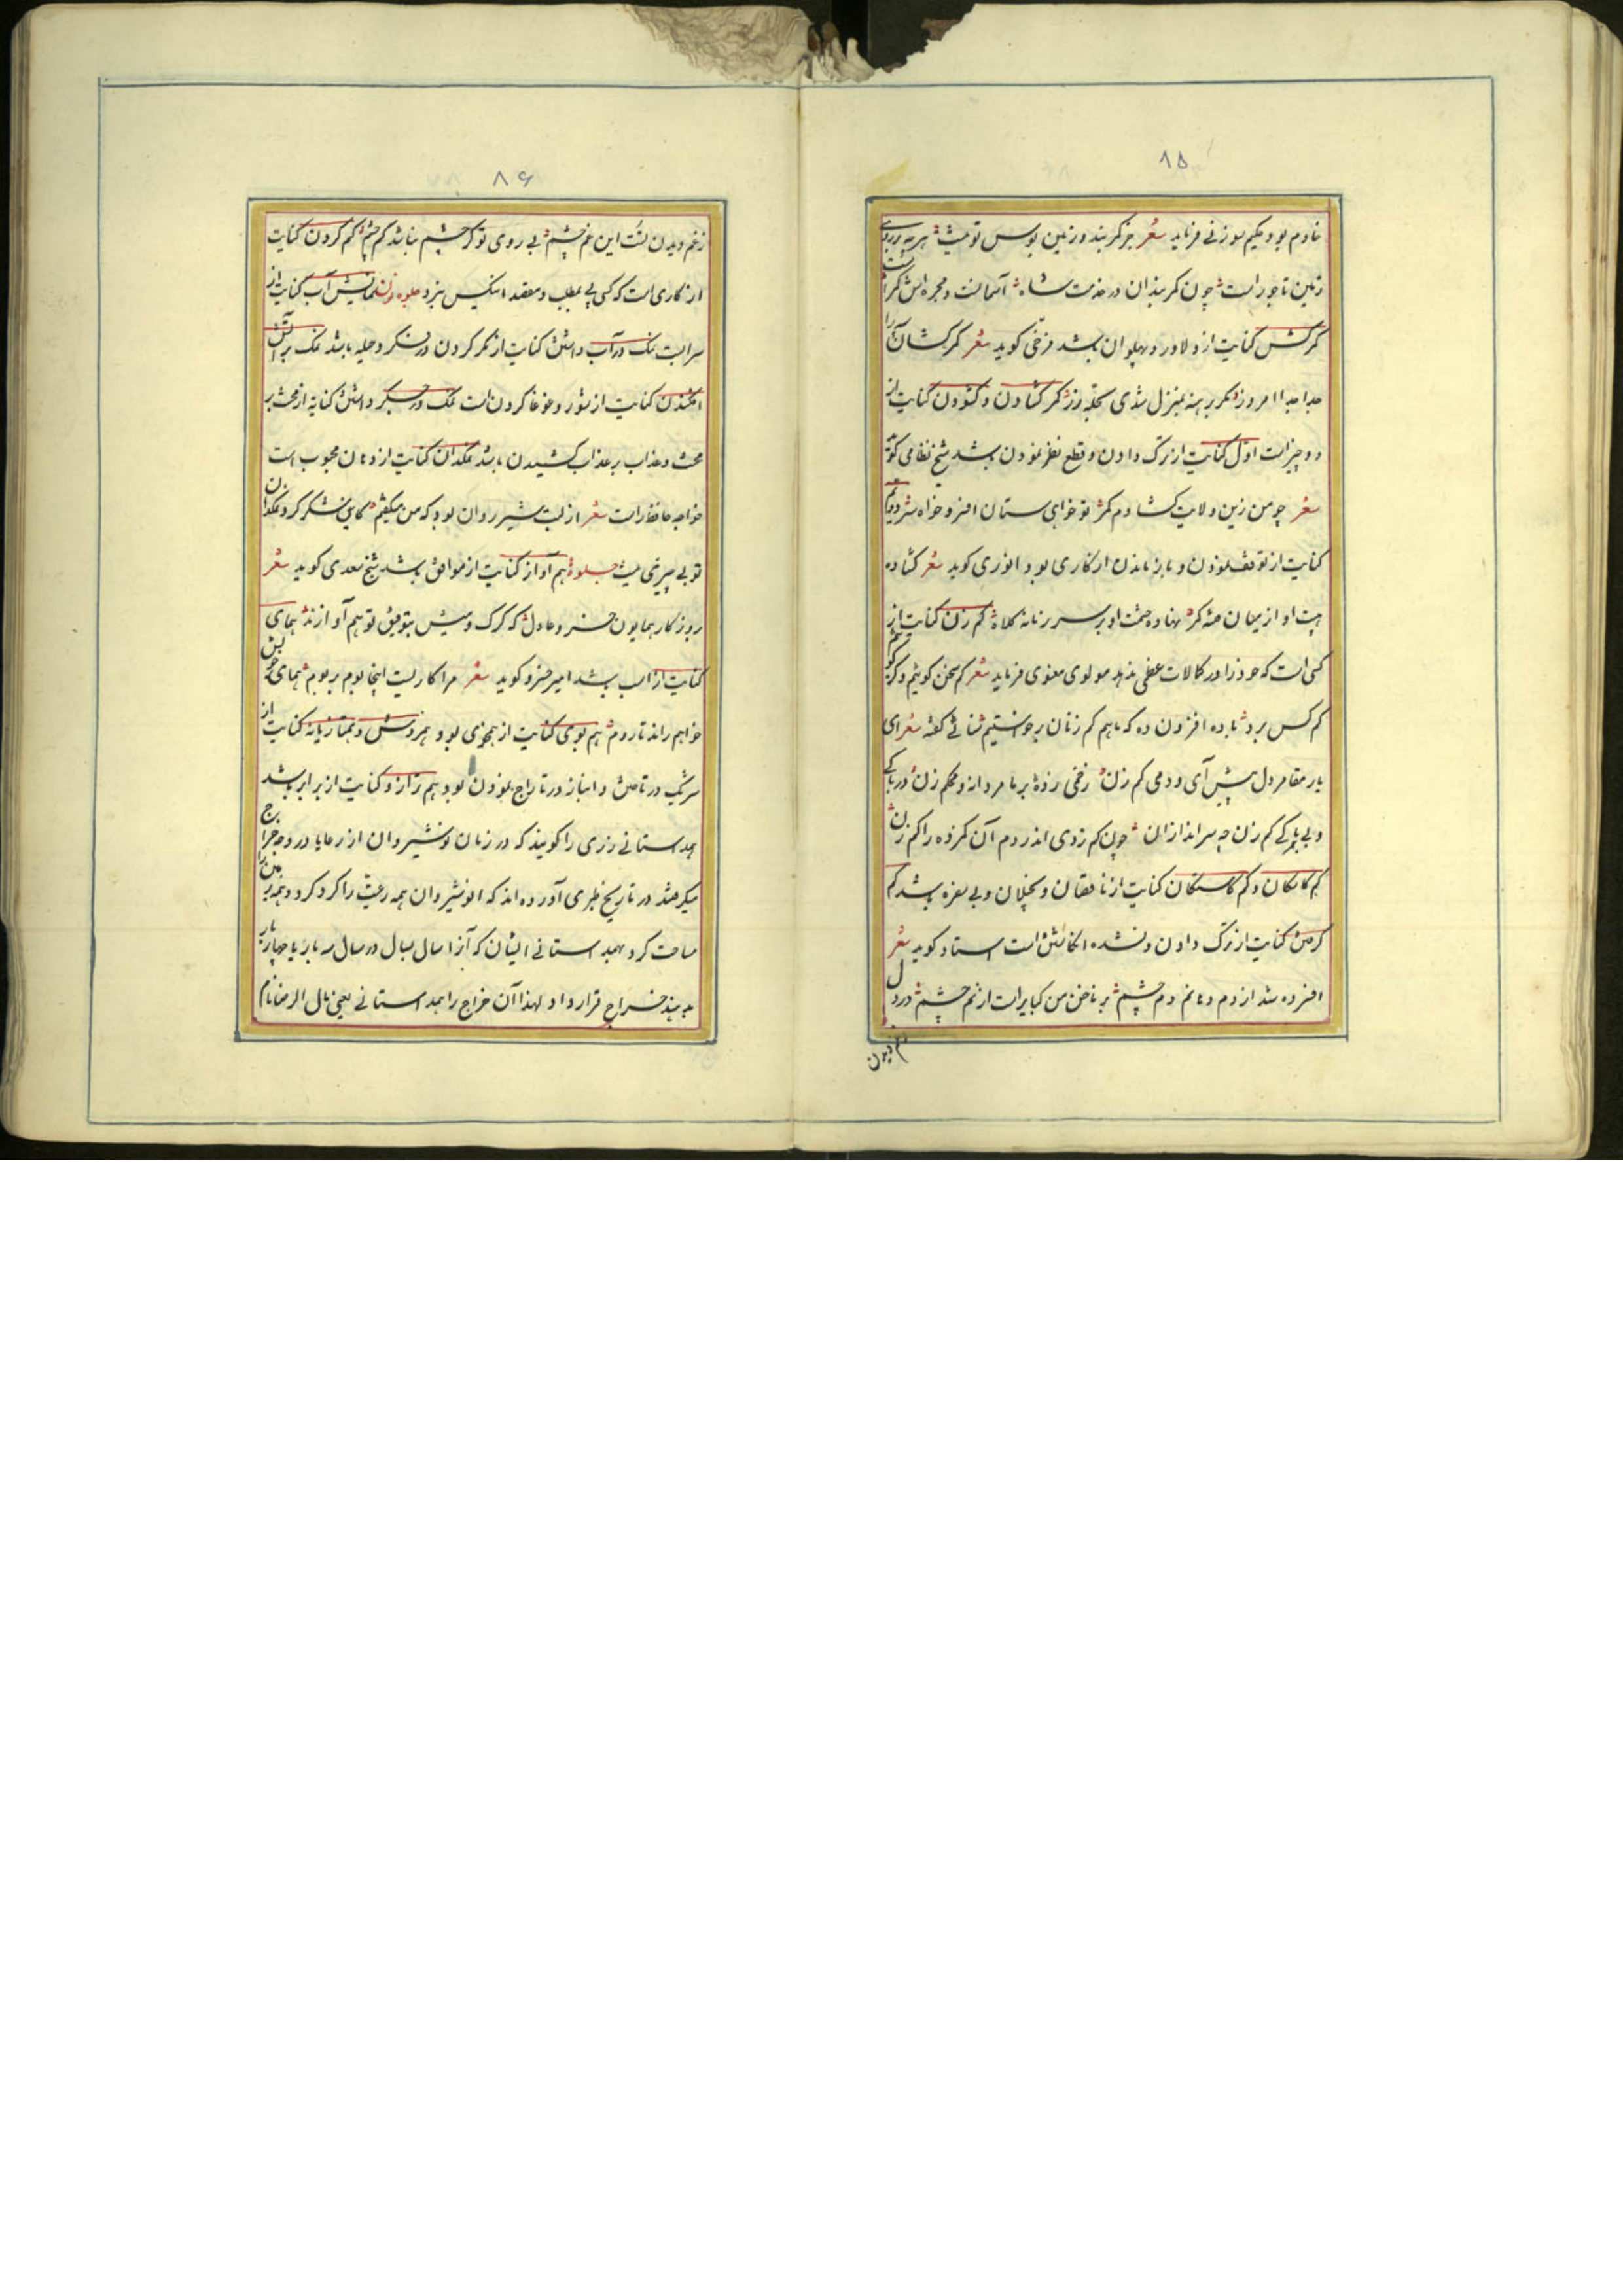 ۸۵
خادم بود حکیم سوزنی فرماید شعر جز کمر بند و زمین بوس تو نیست هر که بر روی
زمین تاجور است چون کمر بندان در خدمت شاه آسمانست و مجره اش کمر است
کمرکش کنایت از دلاور و پهلوان باشد فرخی گوید شعر کمرکشان
امروز بمنزل شدی کمر گشادن و گشودن کنایت از
دو چیز است اول کنایت از ترک دادن و قطع نظر نمودن باشد شیخ نظامی گوید
شعر چو من زین ولایت گشادم کمر تو خواهی ستان افسر و خواه سر دویم
کنایت از توقف نمودن و باز ماندن از کاری بود انوری گوید شعر گشاده
هیبت او از میان فتنه کمر نهاده حشمت او بر سر زمانه کلاه کم زن کنایت از
کسی است که خود را در کمالات عظمی ننهد مولوی معنوی فرماید شعر کم سخن گوئیم وگر گوئیم
کم کس برد باده افزون ده که ما هم کم زنان برخواستیم سنائی گفته شعر ای
یار مقامر دل پیش آی و دمی کم زن زخمی که زدی بر ما مردانه و محکم زن در پاکی
و بی باکی کم زن چه سراندازان چون کم زدی اندر دم آن کم زده را کم زن
کم کاسگان و کم کاستگان کنایت از ناقصان و بخیلان و بی سفره باشد کم
گرفتن کنایت از ترک دادن و نشده انگاشتن است استاد گوید شعر
افسرده شد از دم دهانم دم چشم بر ناخن من گیا برست از نم چشم در دل
غم دیدن
۸۶
زغم دیدن تست این غم چشم بی روی تو گر چشم نباشد کم چشم کم کردن کنایت
از کاری است که کسی پی مطلب و مقصد آنکس نبرد جلوه نون نمایش آب کنایت از
سرابست نمک در آب داشتن کنایت از مکر کردن در فکر و حیله باشد نمک بر آتش
افکندن کنایت از شور و غوغا کردن است نمک در جگر داشتن کنایه از محنت بر
محنت و عذاب بر عذاب کشیدن باشد نمکدان کنایت از دهان محبوب است
خواجه حافظ راست شعر از لبت شیر روان بود که من میگفتم کاین شکر گرد نمکدان
تو بی چیزی نیست جلوه هم آواز کنایت از موافق باشد شیخ سعدی گوید شعر
روزگار همایون خسرو عادل که گرگ و میش بتوفیق تو هم آوازند همای
کنایت از اسب باشد امیر خسرو گوید شعر مرا کاریست اینجا بوم بر بوم همای خویش
خواهم راند تا روم هم بوی کنایت از همخوی بود و همزدش و همتازیانه کنایت از
شریک در تاختن و انباز در تاراج نمودن بود و هم ترازو کنایت از برابر باشد
همداستانی زری را گویند که در زمان نوشیروان از رعایا در وجه خراج
میگرفتند در تاریخ طبری آورده اند که انوشیروان همه رعیت را گرد کرد و زمین را
مساحت کرد بهمداستانی ایشان که آنرا سال بسال در سال سه بار یا چهار بار
بدهند خراج قرار داد لهذا آن خراج را همداستانی یعنی مال الرضا نام